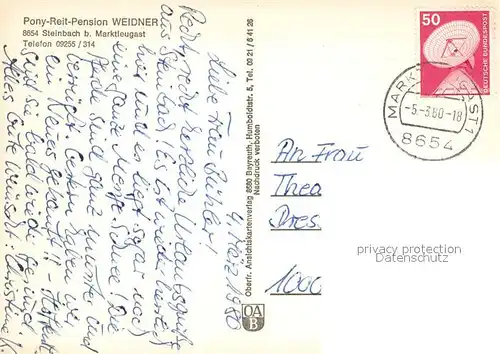 Pony-Reit-Pension WEIDNER
8654 Steinbach b. Marktleugast
Telefon 09255 / 314
4. März 1980
Liebe Frau Bühler!
Recht herzliche Urlaubsgrüße
aus Steinbach! Es ist wieder herrlich
hier und es liegt sogar noch
eine ganze Menge Schnee! Die
Pferde sind ganz munter und
haben
ein neues gekauft
Sind Sie bald wieder gesund
Alles Gute wünscht: Christine K.
Oberfr. Ansichtskartenverlag 8580 Bayreuth, Humboldtstr. 5, Tel. 09 21 / 6 41 26
Nachdruck verboten
50
DEUTSCHE BUNDESPOST
MARK GAST 1
-5.-3.80-18
8654
An Frau
Thea
Dres
1000
privacy protection
Datenschutz
OA
B